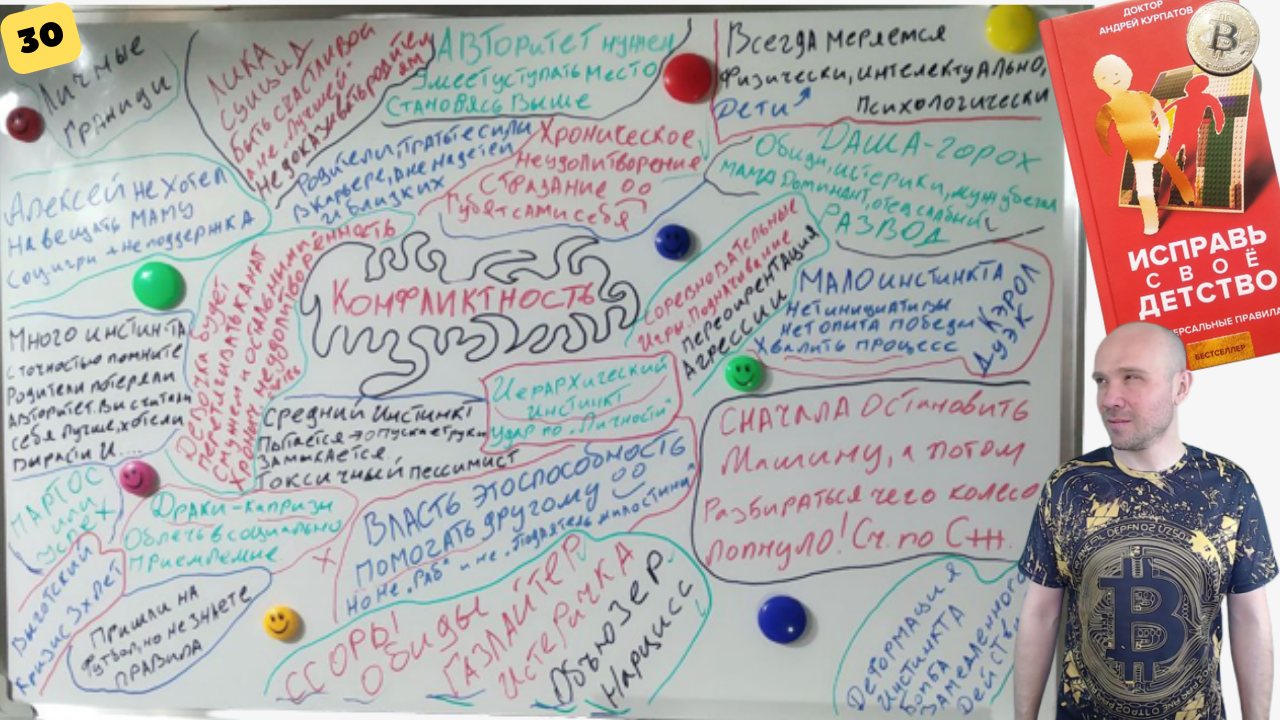 30
Личные
границы
ЛИКА
СУИЦИД
БЫТЬ СЧАСТЛИВОЙ
а не "Лучшей"
НЕДОКАЗЫВАТЬ РОДИТЕЛЯМ
АВТОРИТЕТ нужен
Умеет уступать место
Становясь выше
Всегда меряемся
Физически, интелектуально,
Дети
Психологически
Алексей не хотел
навещать маму
Соц игры + не поддержка
Родители, тратьте силы
в карьере, а не на детей
и близких
Хроническое
Неудолитворение
Страдание
Губят сами себя
ДАША-горох
Обиды, истерики, муж убегал
мама Доминант, отец слабый
РАЗВОД
Конфликтность
Соревновательные
Игры. Подначивание
Переоирентация
Агрессии
МАЛО ИНСТИНКТА
Нет инициативы
Нет опыта победы
Хвалить процесс
КЭРОЛ
ДУЭК
Много инстин-та
с точностью помните
Родители потеряли
Авторитет. Вы считали
себя лучше, хотели
вырасти и....
Девочка будет
перетягивать канат
с мужем и остальными
Хронич. неудолитворённость
Средний инстинкт
Пытается → опускает руки
Замыкается
Токсичный пессимист
Иерархический
инстинкт
Удар по "Личности"
Сначала остановить
Машину, а потом
Разбираться чего колесо
лопнуло! Сч. по СЖ.
ПАРТОС
или
успех
Драки-капризы
Облечь в социально
Приемлемые
Власть это способность
помогать другому
но не "Раб" и не "Податель милостыни"
Выготский
Кризис 3х лет
Пришли на
футбол, но не знаете
правила
ССОРЫ
Обиды
ГАЗЛАЙТЕР
ИСТЕРИЧКА
Абьюзер
Нарцисс
Деформация
Инстинкта
Бомба
Замедленного
Действия
ДОКТОР
АНДРЕЙ КУРПАТОВ
ИСПРАВЬ
СВОЁ
ДЕТСТВО
ПРАВИЛА
БЕСТСЕЛЛЕР